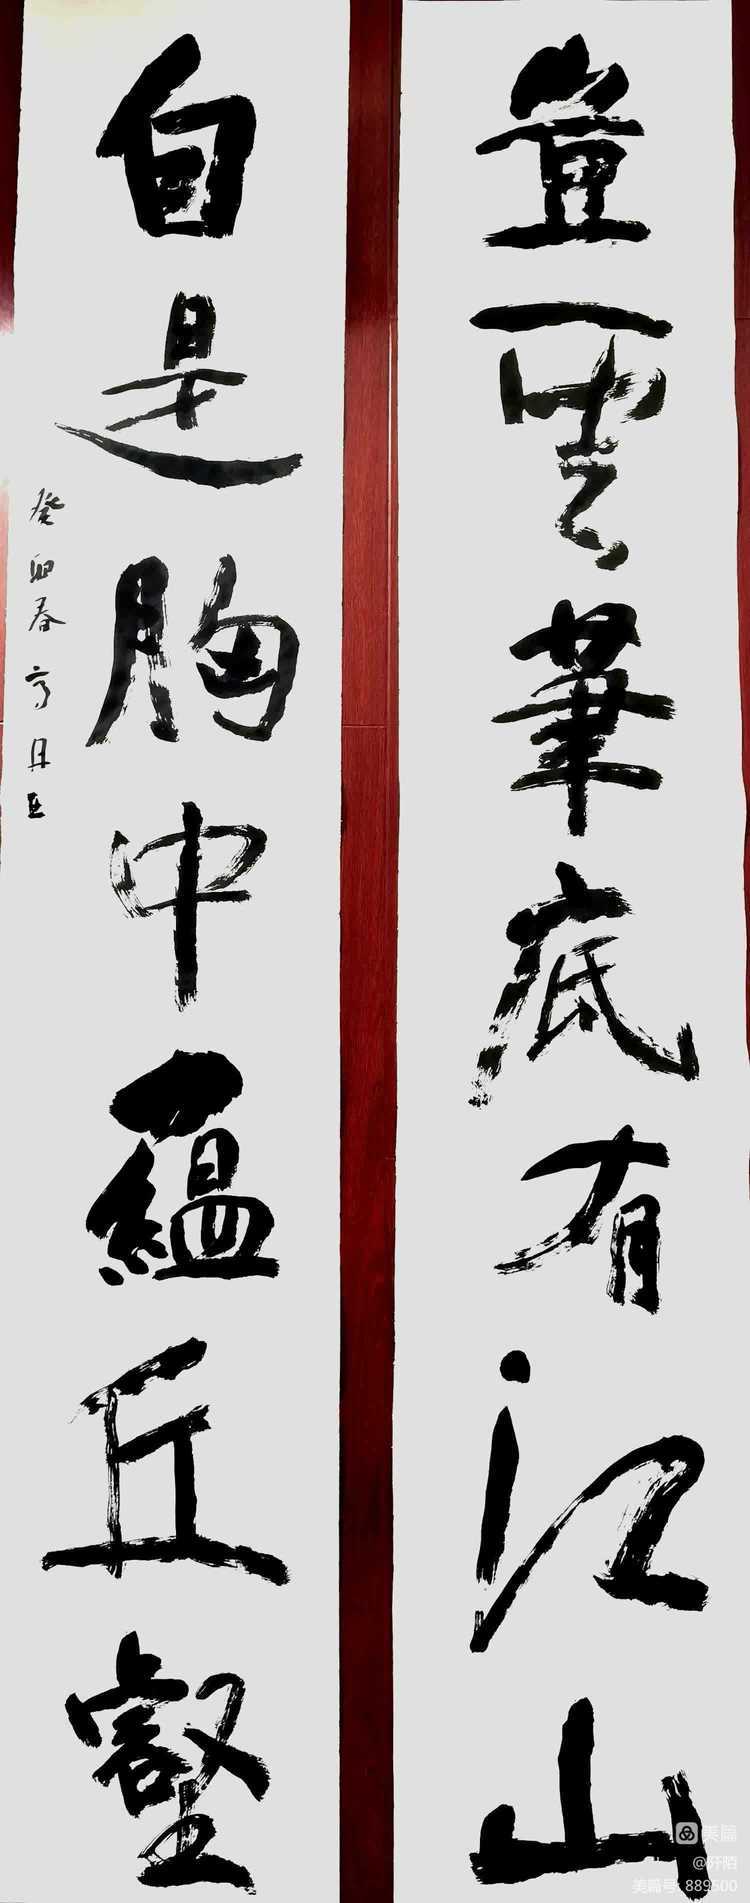 豈雲筆底有江山
自是胸中蘊丘壑
癸卯春
美篇
@阡陌
美篇号: 889500